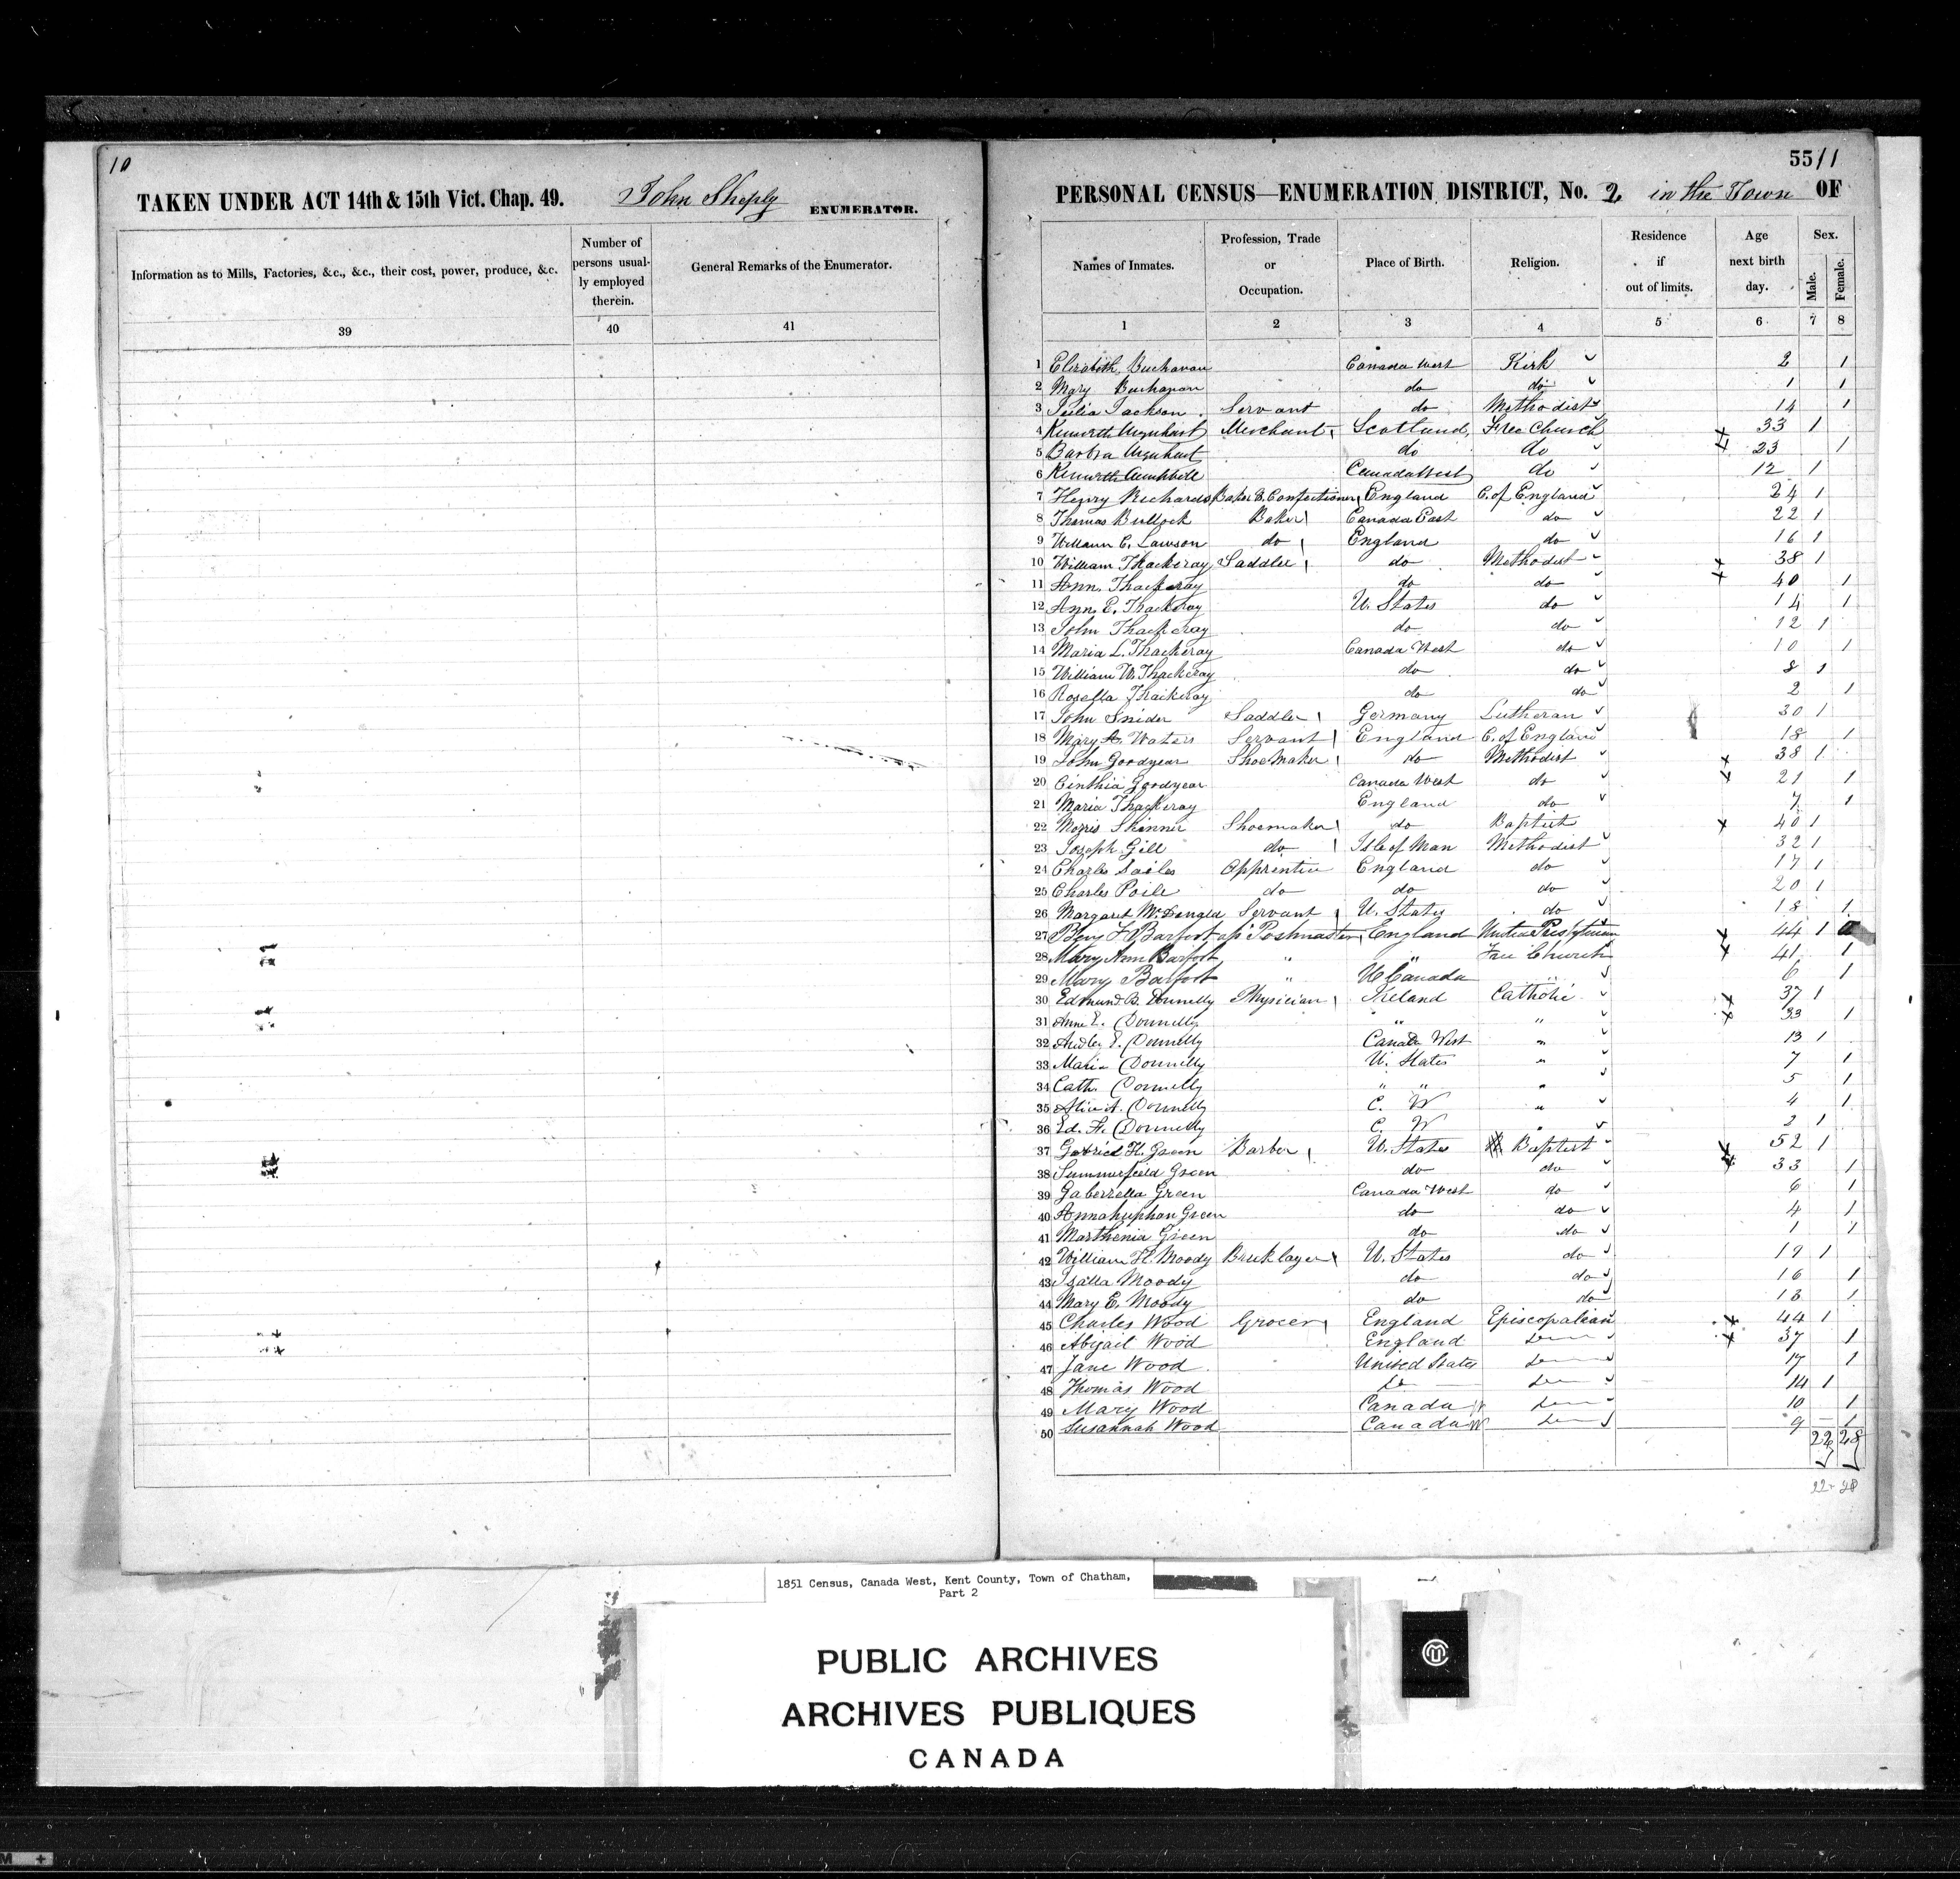 10
TAKEN UNDER ACT 14th & 15th Vict. Chap. 49. John Sheply ENUMERATOR.
Information as to Mills, Factories, &c., &c., their cost, power, produce, &c.
Number of persons usual-
ly employed
therein.
General Remarks of the Enumerator.
39 40 41
55/1
PERSONAL CENSUS—ENUMERATION DISTRICT, No. 2 in the Town OF
Names of Inmates.
Profession, Trade
or
Occupation.
Place of Birth.
Religion.
Residence
if
out of limits.
Age
next birth
day.
Sex.
Male.
Female.
1 2 3 4 5 6 7 8
1 Elizabeth Buchanan Canada West Kirk 2 1
2 Mary Buchanan do do 1 1
3 Julia Jackson Servant do Methodist 14 1
4 Kenneth Urquhart Merchant Scotland, Free Church 33 1
5 Barbra Urquhart do do 23 1
6 Kenneth Canada West do 12 1
7 Henry Richards Baker & Confectioner England C. of England 24 1
8 Thomas Bullock Baker Canada East do 22 1
9 William C. Lawson do England do 16 1
10 William Thackeray Saddler do Methodist 38 1
11 Ann Thackeray do do 40 1
12 Ann E. Thackeray U. States do 14 1
13 John Thackeray do do 12 1
14 Maria L. Thackeray Canada West do 10 1
15 William W. Thackeray do do 8 1
16 Rosella Thackeray do do 2 1
17 John Snider Saddler Germany Lutheran 30 1
18 Mary A. Waters Servant England C. of England 18 1
19 John Goodyear Shoe Maker do Methodist 38 1
20 Cinthia Goodyear Canada West do 21 1
21 Maria Thackeray England do 7 1
22 Morris Skinner Shoemaker do Baptist 40 1
23 Joseph Gill do Isle of Man Methodist 32 1
24 Charles Sailes Apprentice England do 17 1
25 Charles Poile do do do 20 1
26 Margaret McDongld Servant U. States do 18 1
27 Benj F Barfoot Postmaster England Presbyterian 44 1
28 Mary Ann Barfoot " " Free Church 41 1
29 Mary Barfoot " U Canada " 6 1
30 Edmund B. Donnelly Physician Ireland Catholic 37 1
31 Anne E. Donnelly " " 33 1
32 E. Donnelly Canada West " 13 1
33 Maria Donnelly U. States " 7 1
34 Cath. Donnelly " " " 5 1
35 Alice A. Donnelly C. W " 4 1
36 Ed. A. Donnelly C. W " 2 1
37 Gabriel H. Green Barber U. States Baptist 52 1
38 Summerfield Green do do 33 1
39 Gaberrella Green Canada West do 6 1
40 Annahuphan Green do do 4 1
41 Marthenia Green do do 1 1
42 William H. Moody Bricklayer U. States do 19 1
43 Isalla Moody do do 16 1
44 Mary E. Moody do do 13 1
45 Charles Wood Grocer England Episcopalian 44 1
46 Abijail Wood England do 37 1
47 Jane Wood United States do 17 1
48 Thomas Wood do do 14 1
49 Mary Wood Canada W do 10 1
50 Susannah Wood Canada W do 9 1
22 28
22 28
1851 Census, Canada West, Kent County, Town of Chatham,
Part 2
PUBLIC ARCHIVES
ARCHIVES PUBLIQUES
CANADA